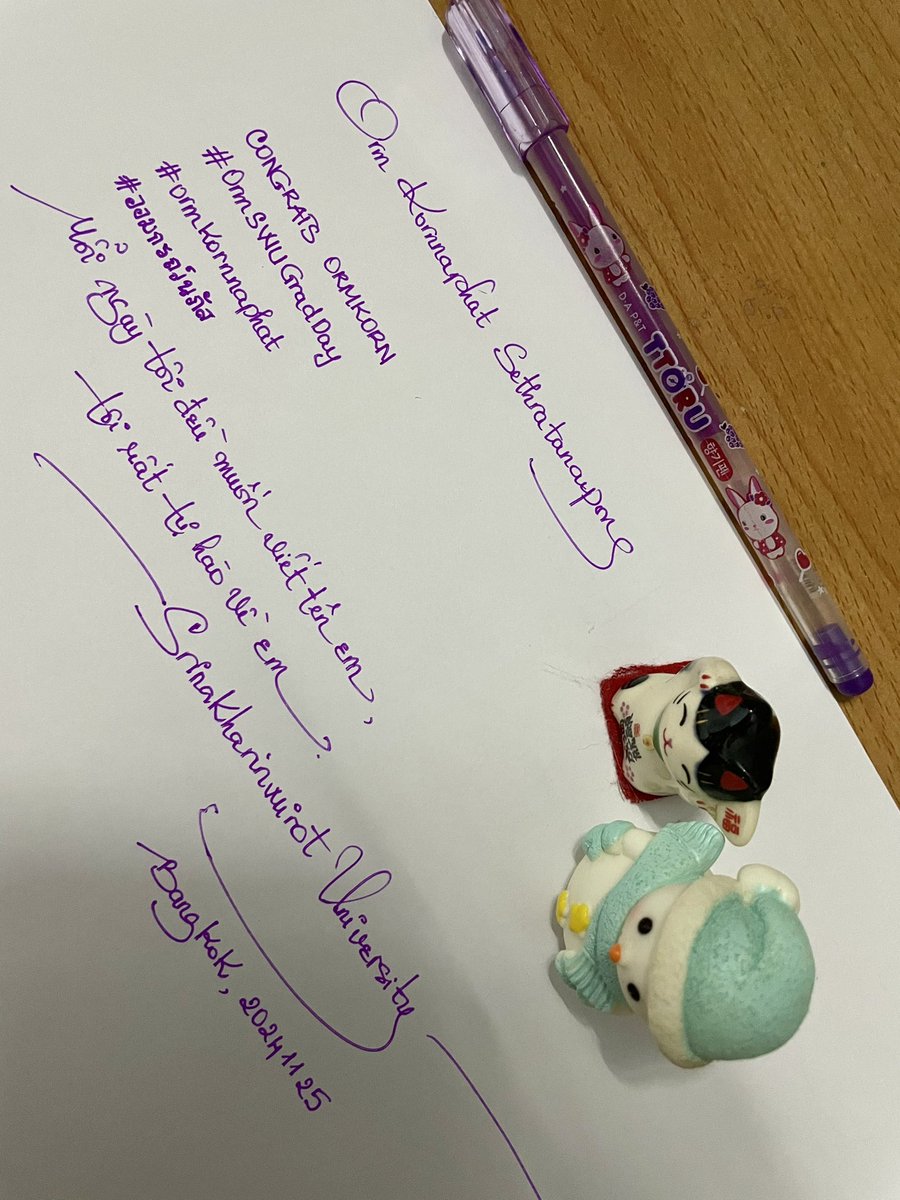 Orm Kornnaphat Sethratanapong
CONGRATS ORMKORN
#OrmSWUGradDay
#ormkornnaphat
#ออมกรณ์นภัส
Mỗi ngày tôi đều muốn viết tên em,
tôi rất tự hào về em
Srinakharinwirot University
Bangkok, 20241125
D.A P&T
TTORU
향기펜
福